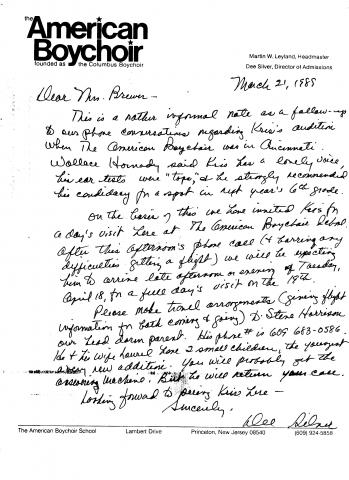 the American
Boychoir
founded as the Columbus Boychoir
Martin W. Leyland, Headmaster
Dee Silver, Director of Admissions
March 21, 1989
Dear Mrs. Brewer -
This is a rather informal note as a follow-up
to our phone conversations regarding Kris's audition
when The American Boychoir was in Cincinnati.
Wallace Hornady said Kris has a lovely voice,
his ear tests were "tops," & he strongly recommended
his candidacy for a spot in next year's 6th grade.
On the basis of this we have invited Kris for
a day's visit here at The American Boychoir School.
After this afternoon's phone call (& barring any
difficulties getting a flight) we will be expecting
him to arrive late afternoon or evening of Tuesday,
April 18, for a full day's visit on the 19th.
Please make travel arrangements (giving flight
information for both coming & going) to Steve Harrison
our head dorm parent. His phone # is 609 683-0586.
He & his wife have 2 small children, the youngest
a very new addition. You will probably get the
answering machine. But he will return your call.
Looking forward to seeing Kris here -
Sincerely,
Dee Silver
The American Boychoir School Lambert Drive Princeton, New Jersey 08540 (609) 924-5858